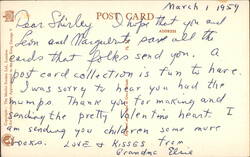 March 1 1959
POST CARD
Dear Shirley I hope that you and
Leon and Marguerite save all the
ADDRESS
cards that folks send you. A
post card collection is fun to have.
I was sorry to hear you had the
mumps. Thank you for making and
sending the pretty Valentine heart. I
am sending you children some more
books. LOVE & KISSES from
Grandma Elsie